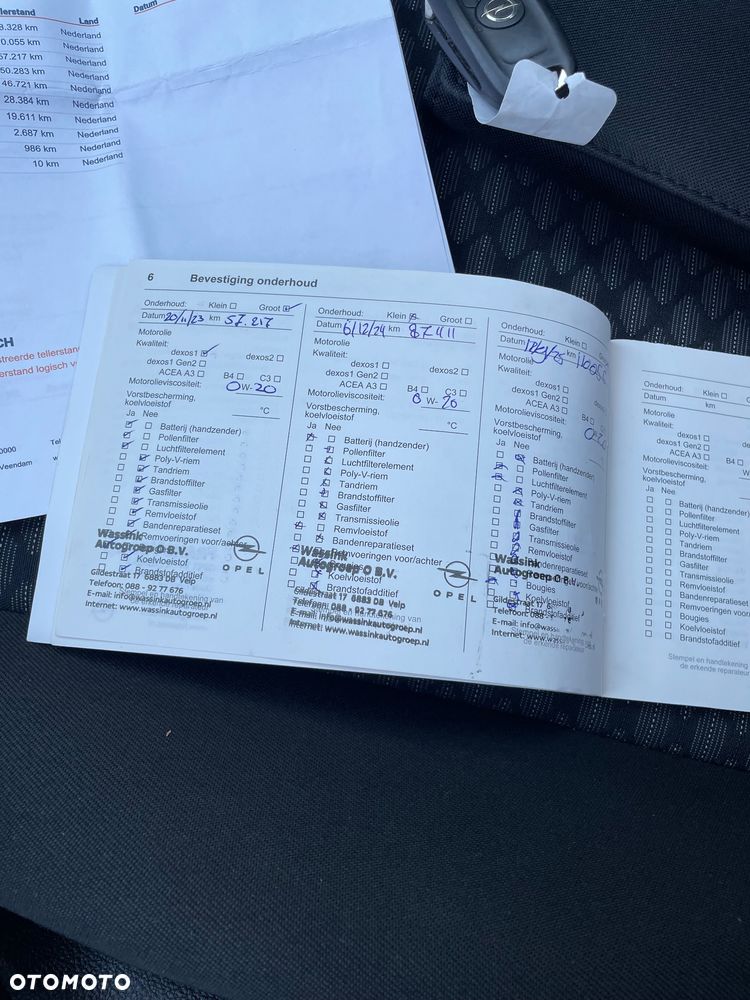 llerstand Land Datum
8.328 km Nederland
0.055 km Nederland
57.217 km Nederland
50.283 km Nederland
46.721 km Nederland
28.384 km Nederland
19.611 km Nederland
2.687 km Nederland
986 km Nederland
10 km Nederland
CH
streerde tellerstan
erstand logisch v
0000 Tel
Veendam w
6 Bevestiging onderhoud
Onderhoud: Klein Groot
Datum 20/11/23 km 57.217
Motorolie
Kwaliteit:
dexos1 dexos2
dexos1 Gen2
ACEA A3 B4 C3
Motorolieviscositeit: 0 W- 20
Vorstbescherming, koelvloeistof °C
Ja Nee
Batterij (handzender)
Pollenfilter
Luchtfilterelement
Poly-V-riem
Tandriem
Brandstoffilter
Gasfilter
Transmissieolie
Remvloeistof
Bandenreparatieset
Remvoeringen voor/achter
Koelvloeistof
Brandstofadditief
Wassink
Autogroep O B.V.
Gildestraat 17 6883 DB Velp
Telefoon: 088 - 92 77 676
E-mail: info@wassinkautogroep.nl
Internet: www.wassinkautogroep.nl
OPEL
Onderhoud: Klein Groot
Datum 6/12/24 km 87411
Motorolie
Kwaliteit:
dexos1 dexos2
dexos1 Gen2
ACEA A3 B4 C3
Motorolieviscositeit: 0 W- 20
Vorstbescherming, koelvloeistof °C
Ja Nee
Batterij (handzender)
Pollenfilter
Luchtfilterelement
Poly-V-riem
Tandriem
Brandstoffilter
Gasfilter
Transmissieolie
Remvloeistof
Bandenreparatieset
Remvoeringen voor/achter
Koelvloeistof
Brandstofadditief
Wassink
Autogroep O B.V.
Gildestraat 17 6883 DB Velp
Telefoon: 088 - 92 77 676
E-mail: info@wassinkautogroep.nl
Internet: www.wassinkautogroep.nl
OPEL
Onderhoud: Klein
Datum km
Motorolie
Kwaliteit:
dexos1
dexos1 Gen2
ACEA A3 B4
Motorolieviscositeit:
Vorstbescherming, koelvloeistof
Ja Nee
Batterij (handzender)
Pollenfilter
Luchtfilterelement
Poly-V-riem
Tandriem
Brandstoffilter
Gasfilter
Transmissieolie
Remvloeistof
Bougies
Koelvloeistof
Brandstofadditief
Wassink
Autogroep O B.
Gildestraat 17
Telefoon: 088
E-mail: info@wass
Internet: www.wass
Onderhoud: Klein
Datum km
Motorolie
Kwaliteit:
dexos1
dexos1 Gen2
ACEA A3 B4
Motorolieviscositeit: W
Vorstbescherming, koelvloeistof
Ja Nee
Batterij (handzender)
Pollenfilter
Luchtfilterelement
Poly-V-riem
Tandriem
Brandstoffilter
Gasfilter
Transmissieolie
Remvloeistof
Bandenreparatieset
Remvoeringen voor
Bougies
Koelvloeistof
Brandstofadditief
Stempel en handtekening
de erkende reparateur
OTOMOTO